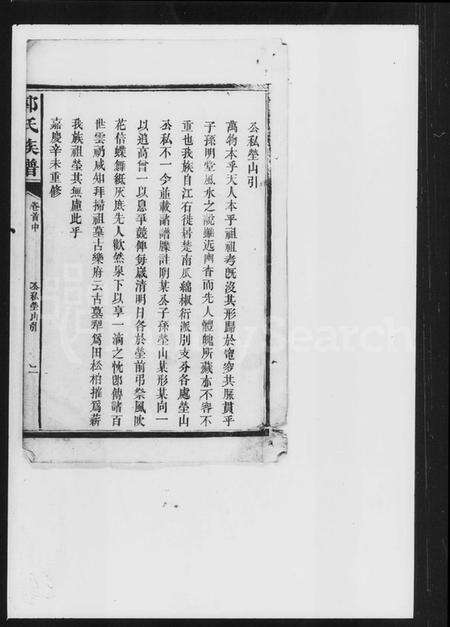 公私塋山引
萬物本乎天人本乎祖祖考旣沒其形歸於窀穸其脈貫乎
子孫明堂風水之說雖近幽杳而先人體魄所藏亦不容不
重也我族自江右徙居楚南瓜緜椒衍派別支分各處塋山
公私不一今並載諸譜牒註明某公子孫塋山某形某向一
以追高曾一以息爭競俾每歲清明日各於塋前弔祭風吹
花信蝶舞紙灰庶先人歡然泉下以享一滴之忱卽傳諸百
世雲礽咸知拜掃祖墓古樂府云古墓犂爲田松柏摧爲薪
我族祖塋其無慮此乎
嘉慶辛未重修
郭氏族譜
卷首中
公私塋山引